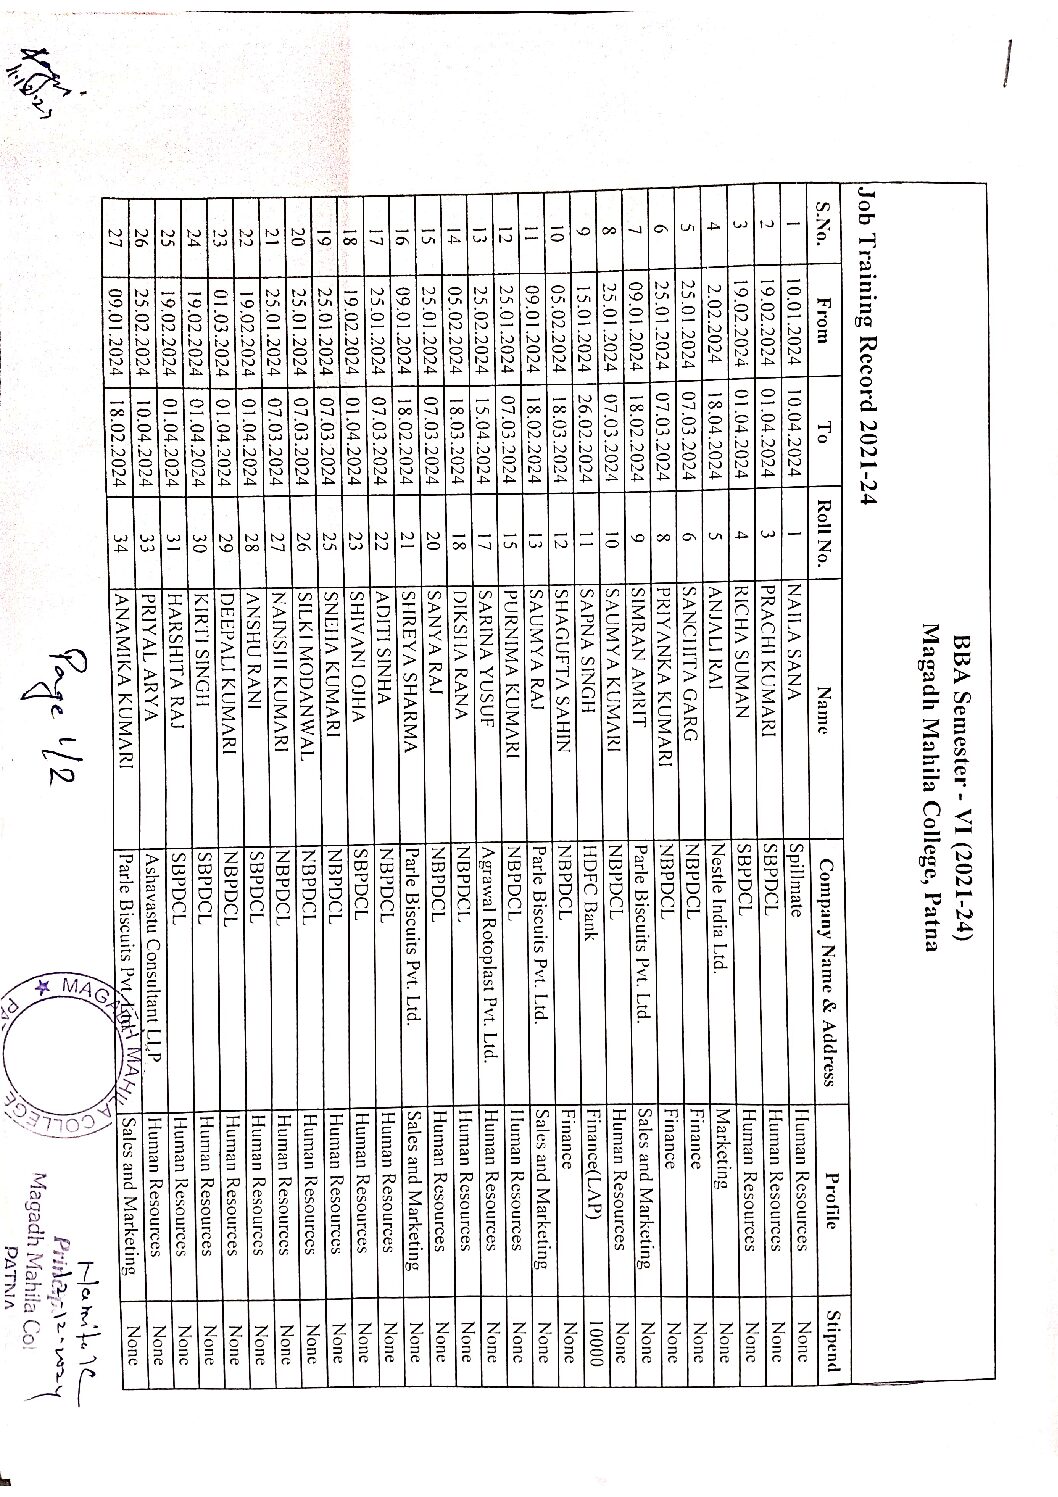 BBA Semester - VI (2021-24)
Magadh Mahila College, Patna
Job Training Record 2021-24
S.No. From To Roll No. Name Company Name & Address Profile Stipend
1 10.01.2024 10.04.2024 1 NAILA SANA Spillmate Human Resources None
2 19.02.2024 01.04.2024 3 PRACHI KUMARI SBPDCL Human Resources None
3 19.02.2024 01.04.2024 4 RICHA SUMAN SBPDCL Human Resources None
4 2.02.2024 18.04.2024 5 ANJALI RAI Nestle India Ltd. Marketing None
5 25.01.2024 07.03.2024 6 SANCHITA GARG NBPDCL Finance None
6 25.01.2024 07.03.2024 8 PRIYANKA KUMARI NBPDCL Finance None
7 09.01.2024 18.02.2024 9 SIMRAN AMRIT Parle Biscuits Pvt. Ltd. Sales and Marketing None
8 25.01.2024 07.03.2024 10 SAUMYA KUMARI NBPDCL Human Resources None
9 15.01.2024 26.02.2024 11 SAPNA SINGH HDFC Bank Finance(LAP) 10000
10 05.02.2024 18.03.2024 12 SHAGUFTA SAHIN NBPDCL Finance None
11 09.01.2024 18.02.2024 13 SAUMYA RAJ Parle Biscuits Pvt. Ltd. Sales and Marketing None
12 25.01.2024 07.03.2024 15 PURNIMA KUMARI NBPDCL Human Resources None
13 25.02.2024 15.04.2024 17 SARINA YUSUF Agrawal Rotoplast Pvt. Ltd. Human Resources None
14 05.02.2024 18.03.2024 18 DIKSHA RANA NBPDCL Human Resources None
15 25.01.2024 07.03.2024 20 SANYA RAJ NBPDCL Human Resources None
16 09.01.2024 18.02.2024 21 SHREYA SHARMA Parle Biscuits Pvt. Ltd. Sales and Marketing None
17 25.01.2024 07.03.2024 22 ADITI SINHA NBPDCL Human Resources None
18 19.02.2024 01.04.2024 23 SHIVANI OJHA SBPDCL Human Resources None
19 25.01.2024 07.03.2024 25 SNEHA KUMARI NBPDCL Human Resources None
20 25.01.2024 07.03.2024 26 SILKI MODANWAL NBPDCL Human Resources None
21 25.01.2024 07.03.2024 27 NAINSHI KUMARI NBPDCL Human Resources None
22 19.02.2024 01.04.2024 28 ANSHU RANI SBPDCL Human Resources None
23 01.03.2024 01.04.2024 29 DEEPALI KUMARI NBPDCL Human Resources None
24 19.02.2024 01.04.2024 30 KIRTI SINGH SBPDCL Human Resources None
25 19.02.2024 01.04.2024 31 HARSHITA RAJ SBPDCL Human Resources None
26 25.02.2024 10.04.2024 33 PRIYAL ARYA Ashavastu Consultant LLP Human Resources None
27 09.01.2024 18.02.2024 34 ANAMIKA KUMARI Parle Biscuits Pvt. Ltd. Sales and Marketing None
Page 1/2
MAGADH MAHILA COLLEGE
Principal
Magadh Mahila Col
PATNA